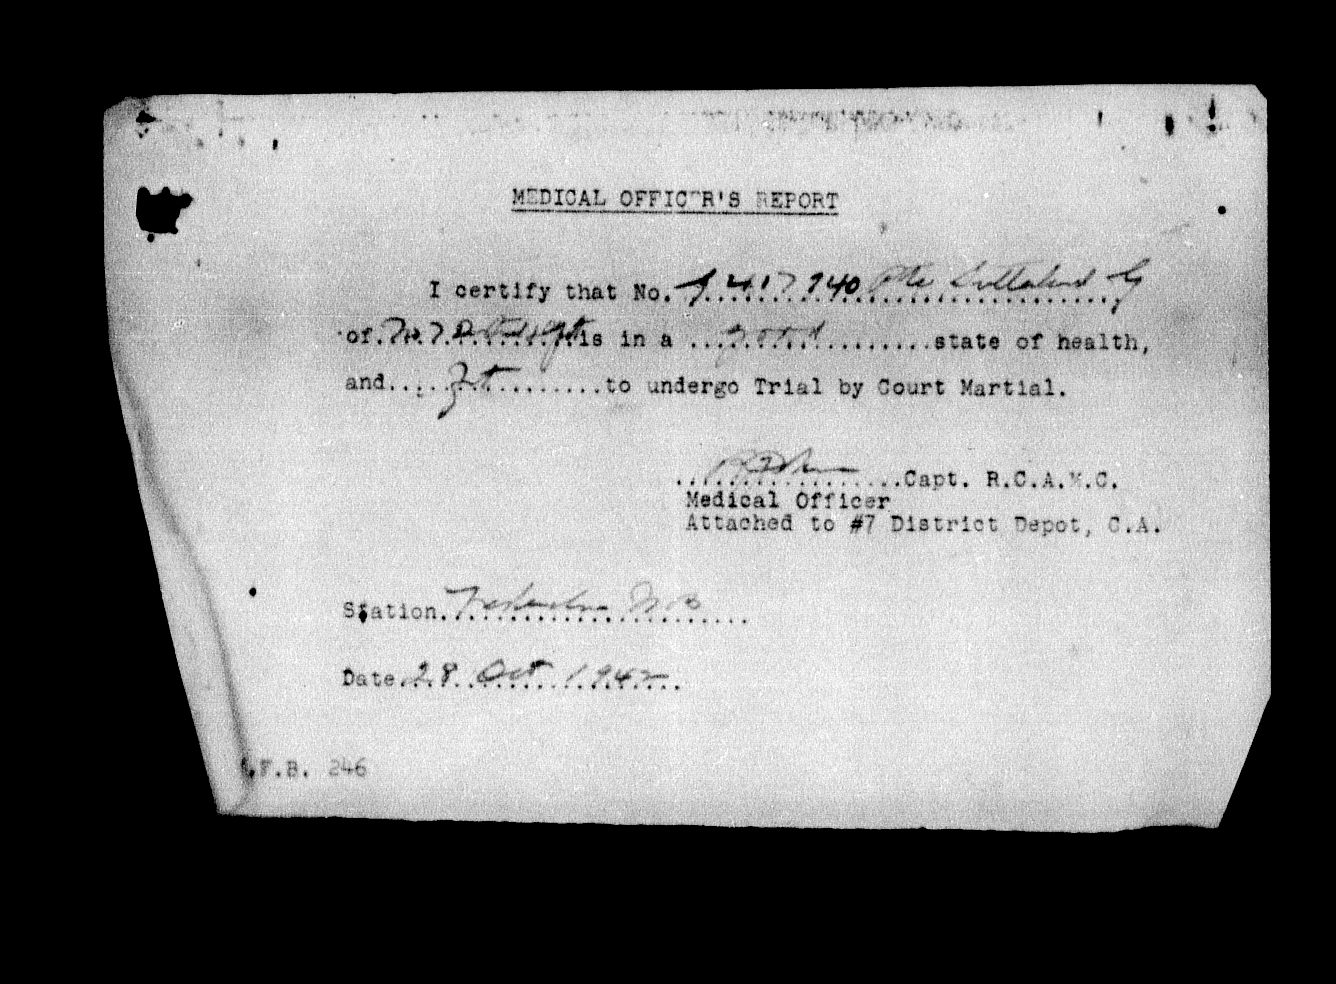 MEDICAL OFFICER'S REPORT
I certify that No. G 417940 Pte
of No. 7 is in a good state of health,
and fit to undergo Trial by Court Martial.
Capt. R.C.A.M.C.
Medical Officer
Attached to #7 District Depot, C.A.
Station. Fredericton N B
Date. 28 Oct 1942
F.B. 246